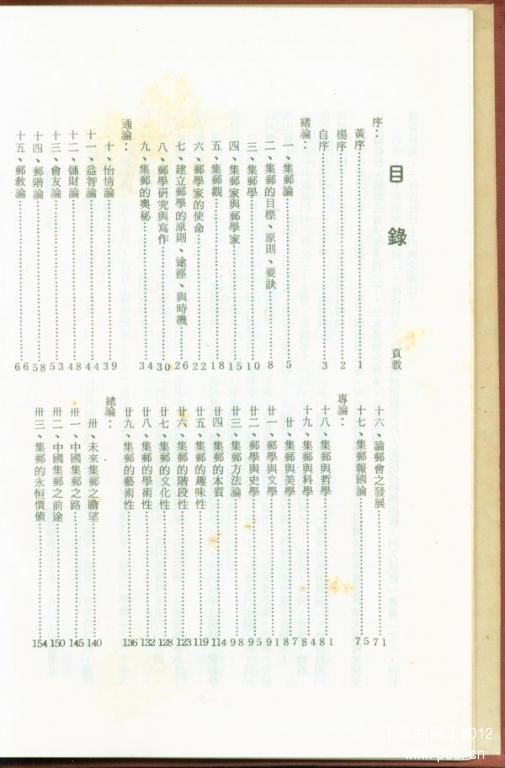 目錄
頁數
序：
黃序⋯⋯1
楊序⋯⋯2
自序⋯⋯3
緒論：
一、集郵論⋯⋯5
二、集郵的目標、原則、要訣⋯⋯8
三、集郵學⋯⋯10
四、集郵家與郵學家⋯⋯15
五、集郵觀⋯⋯18
六、郵學家的使命⋯⋯22
七、建立郵學的原則、途徑、與時機⋯⋯26
八、郵學研究與寫作⋯⋯30
九、集郵的奧秘⋯⋯34
通論：
十、怡情論⋯⋯39
十一、益智論⋯⋯44
十二、儲財論⋯⋯48
十三、會友論⋯⋯53
十四、郵階論⋯⋯58
十五、郵教論⋯⋯66
十六、論郵會之發展⋯⋯71
十七、集郵報國論⋯⋯75
專論：
十八、集郵與哲學⋯⋯81
十九、集郵與科學⋯⋯84
廿、集郵與美學⋯⋯87
廿一、郵學與文學⋯⋯91
廿二、郵學與史學⋯⋯95
廿三、集郵方法論⋯⋯98
廿四、集郵的本質⋯⋯114
廿五、集郵的趣味性⋯⋯119
廿六、集郵的階段性⋯⋯123
廿七、集郵的文化性⋯⋯128
廿八、集郵的學術性⋯⋯132
廿九、集郵的藝術性⋯⋯136
總論：
卅、未來集郵之瞻望⋯⋯140
卅一、中國集郵之路⋯⋯145
卅二、中國集郵之前途⋯⋯150
卅三、集郵的永恒價值⋯⋯154
2012